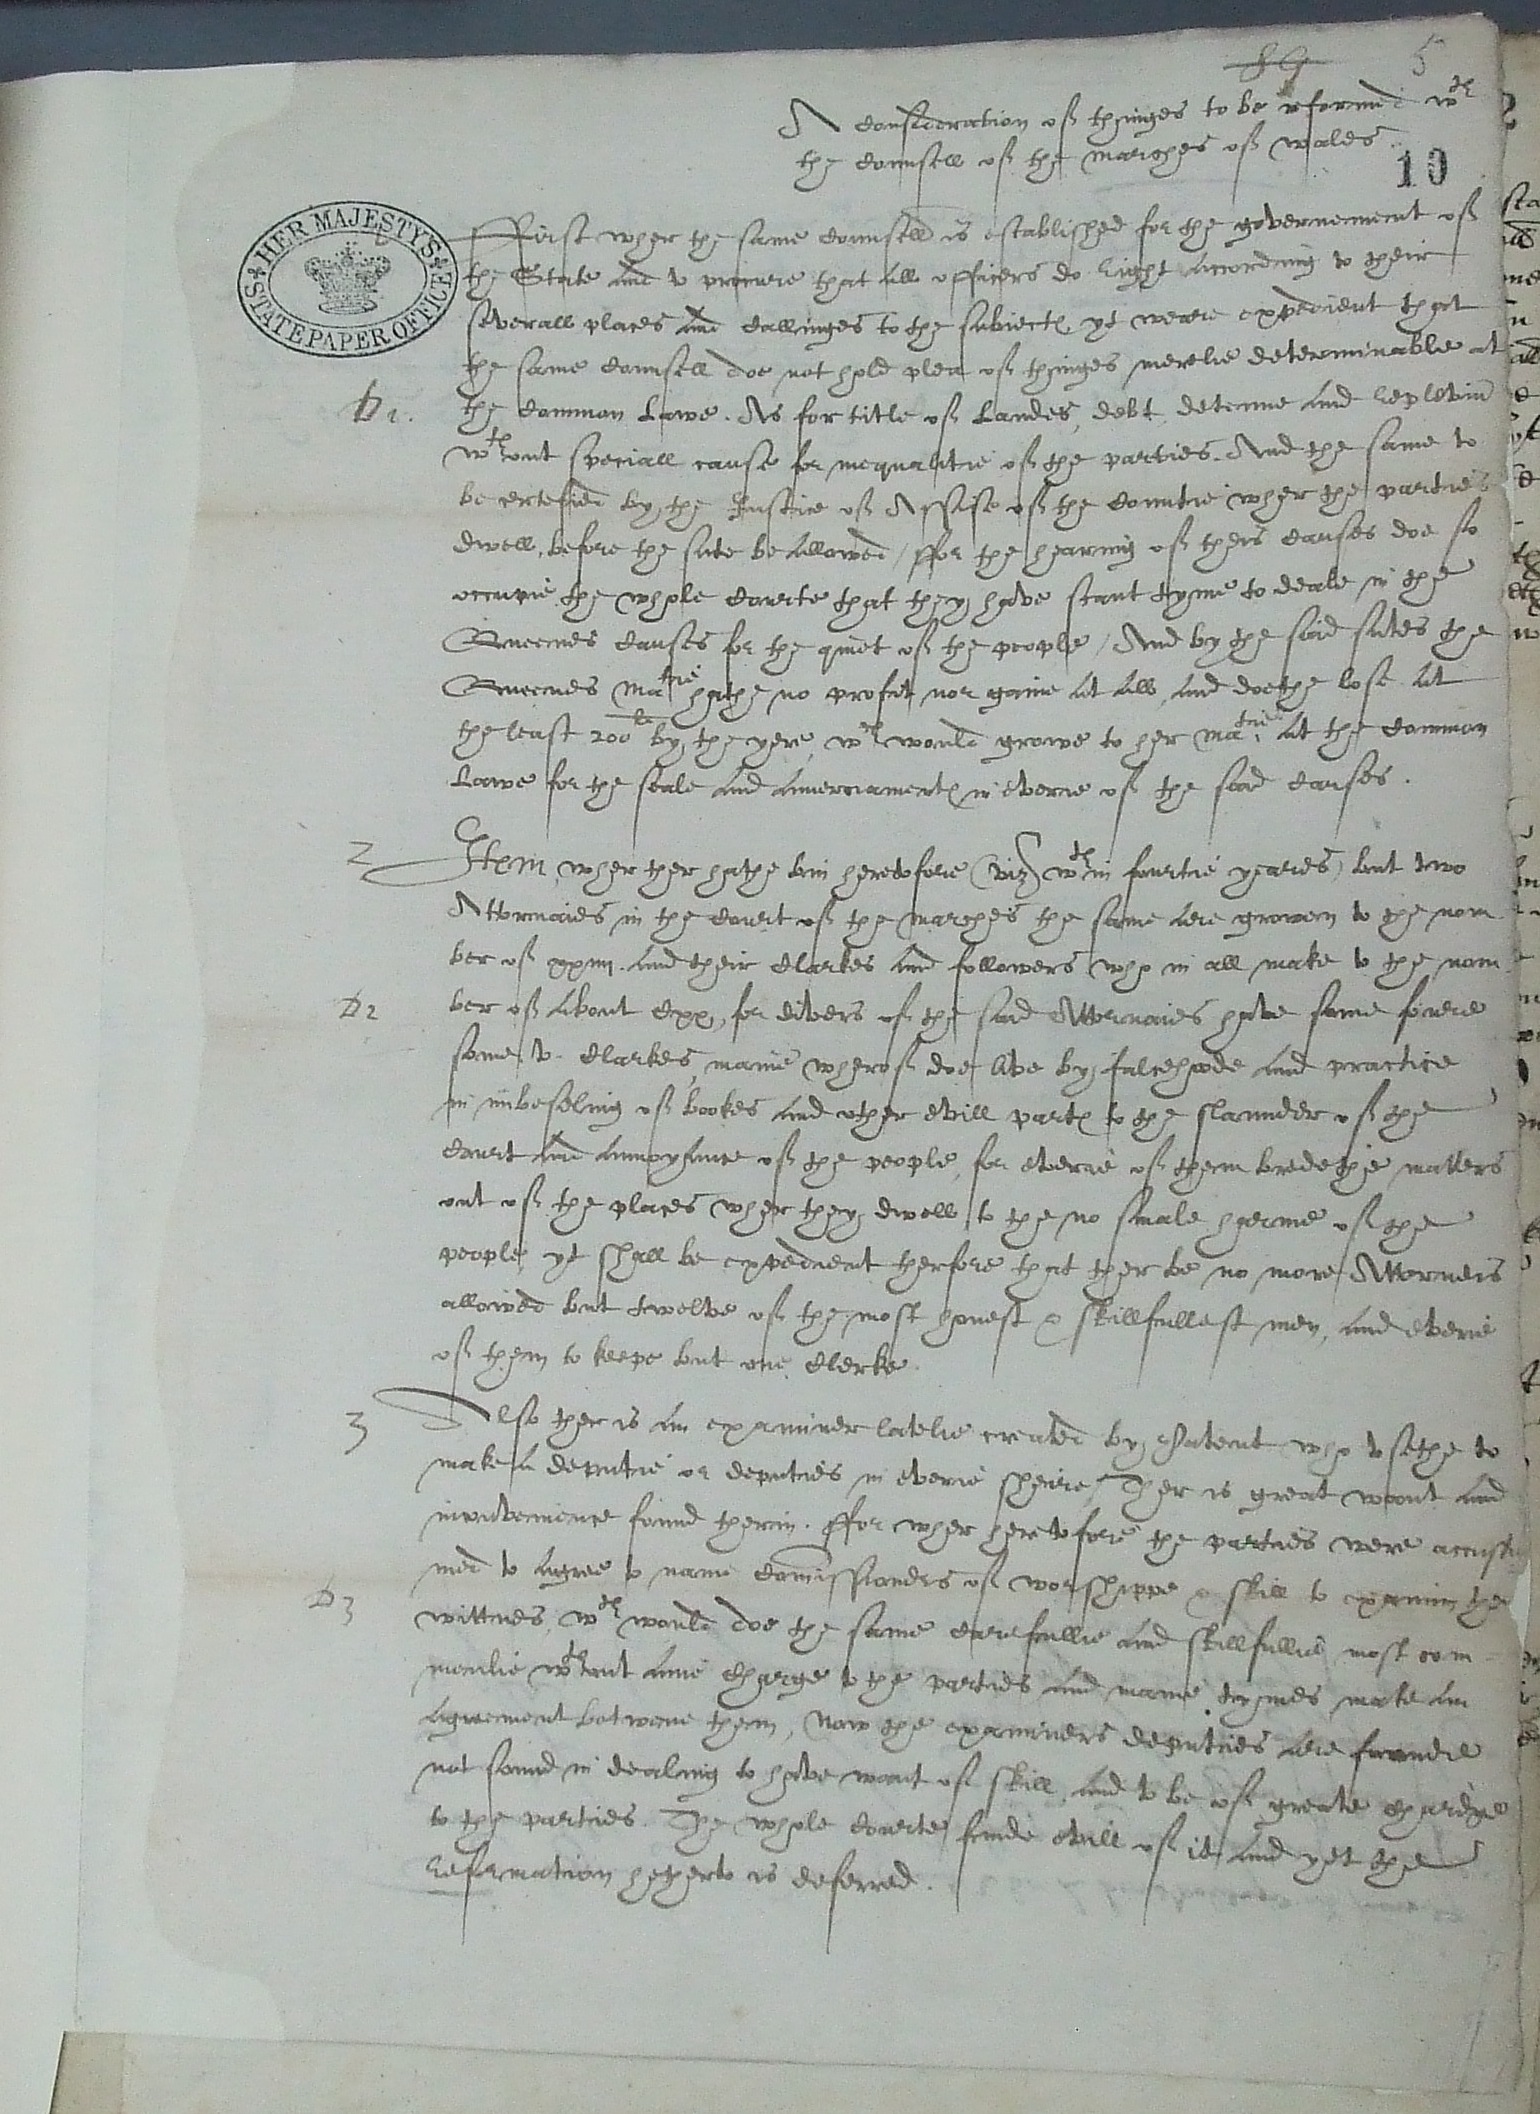 89 5
A consideration of thinges to be reformed wth
the counsell of the marches of wales
10
HER MAJESTY'S STATE PAPER OFFICE
First wher the same counsell is established for the governement of
the State and to procure that all officers do right according to their
severall places and callinges to the subiectes yt weare expedient that
the same counsell doe not hold plea of thinges merelie determinable at
the common Lawe. As for title of Landes, debt, detinue and replevin
wthout speciall cause for inequalitie of the parties. And the same to
be certefied by the Justice of Assise of the countie wher the parties
dwell, before the sute be allowed / ffor the hearing of theis causes doe so
occupie the whole courte that they have scant tyme to deale in the
Queenes causes for the quiet of the people / And by the said sutes the
Queenes Matie hathe no profit nor gaine at all, and doethe lose at
the least 200li by the yere, wch would growe to her Matie at the common
Lawe for the seale and amerciamentes in everie of the said causes.
2 Item wher ther hathe bin heretofore (viz) wthin fourtie yeares, but two
Attornaies in the Court of the marches the same are growen to the nom
ber of xxiiii. and their Clarkes and followers who in all make to the nom
2 ber of about Cxx, for divers of the said Attornaies have some fowre
some v. Clarkes manie wherof doe live by falcehoode and practice
in imbeseling of bookes and other evill partes to the slaunder of the
Court and annoysance of the people, for everie of them bredethe matters
out of the places wher they dwell to the no smale harme of the
people, yt shall be expedient therfore that ther be no more Attorneis
allowed but twelve of the most honest & skillfullest men, and everie
of them to keepe but one Clerke.
3 Also ther is an examiner latelie created by Patent who usethe to
make a deputie or deputies in everie sheire / Ther is great want and
inconvenience found therin. ffor wher heretofore the parties were accusto
med to agree to name Comissioners of worshippe & skill to examin the
3 wittnes, wch would doe the same carefullie and skillfullie most com
monlie wthout anie charge to the parties and manie tymes make an
agreement betwene them, Now the examiners deputies are founde
not sound in dealing to have want of skill, and to be of greate chardge
to the parties. The whole courte finde evill of it and yet the
reformation hetherto is deferred.